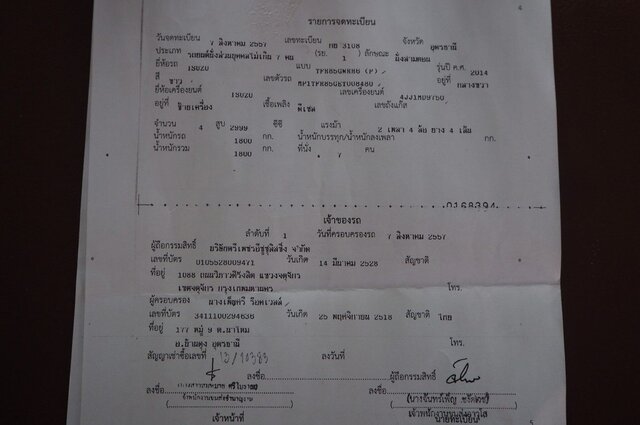 4
รายการจดทะเบียน
วันจดทะเบียน 7 สิงหาคม 2557 เลขทะเบียน กย 3108 จังหวัด อุดรธานี
ประเภท รถยนต์นั่งส่วนบุคคลไม่เกิน 7 คน (รย. 1 ) ลักษณะ นั่งสามตอน
ยี่ห้อรถ ISUZU แบบ รุ่นปี ค.ศ. 2014
สี ขาว เลขตัวรถ อยู่ที่ กลางขวา
ยี่ห้อเครื่องยนต์ ISUZU เลขเครื่องยนต์ 4JJ1MU9750
อยู่ที่ ซ้ายเครื่อง เชื้อเพลิง ดีเซล เลขถังแก๊ส
จำนวน 4 สูบ 2999 ซีซี แรงม้า 2 เพลา 4 ล้อ ยาง 4 เส้น
น้ำหนักรถ 1800 กก. น้ำหนักบรรทุก/น้ำหนักลงเพลา กก.
น้ำหนักรวม 1800 กก. ที่นั่ง 7 คน
0168394
เจ้าของรถ
ลำดับที่ 1 วันที่ครอบครองรถ 7 สิงหาคม 2557
ผู้ถือกรรมสิทธิ์ บริษัทตรีเพชรอีซูซุลิสซิ่ง จำกัด
เลขที่บัตร 0105528009471 วันเกิด 14 มีนาคม 2528 สัญชาติ
ที่อยู่ 1088 ถนนวิภาวดีรังสิต แขวงจตุจักร
เขตจตุจักร กรุงเทพมหานคร โทร.
ผู้ครอบครอง นางเพ็ญศรี
เลขที่บัตร 3411100294636 วันเกิด 25 พฤศจิกายน 2518 สัญชาติ ไทย
ที่อยู่ 177 หมู่ 9 ต.นาไหม
อ.บ้านดุง อุดรธานี โทร.
สัญญาเช่าซื้อเลขที่ ลงวันที่
ลงชื่อ ผู้ถือกรรมสิทธิ์
ลงชื่อ ลงชื่อ
เจ้าหน้าที่ นายทะเบียน
5